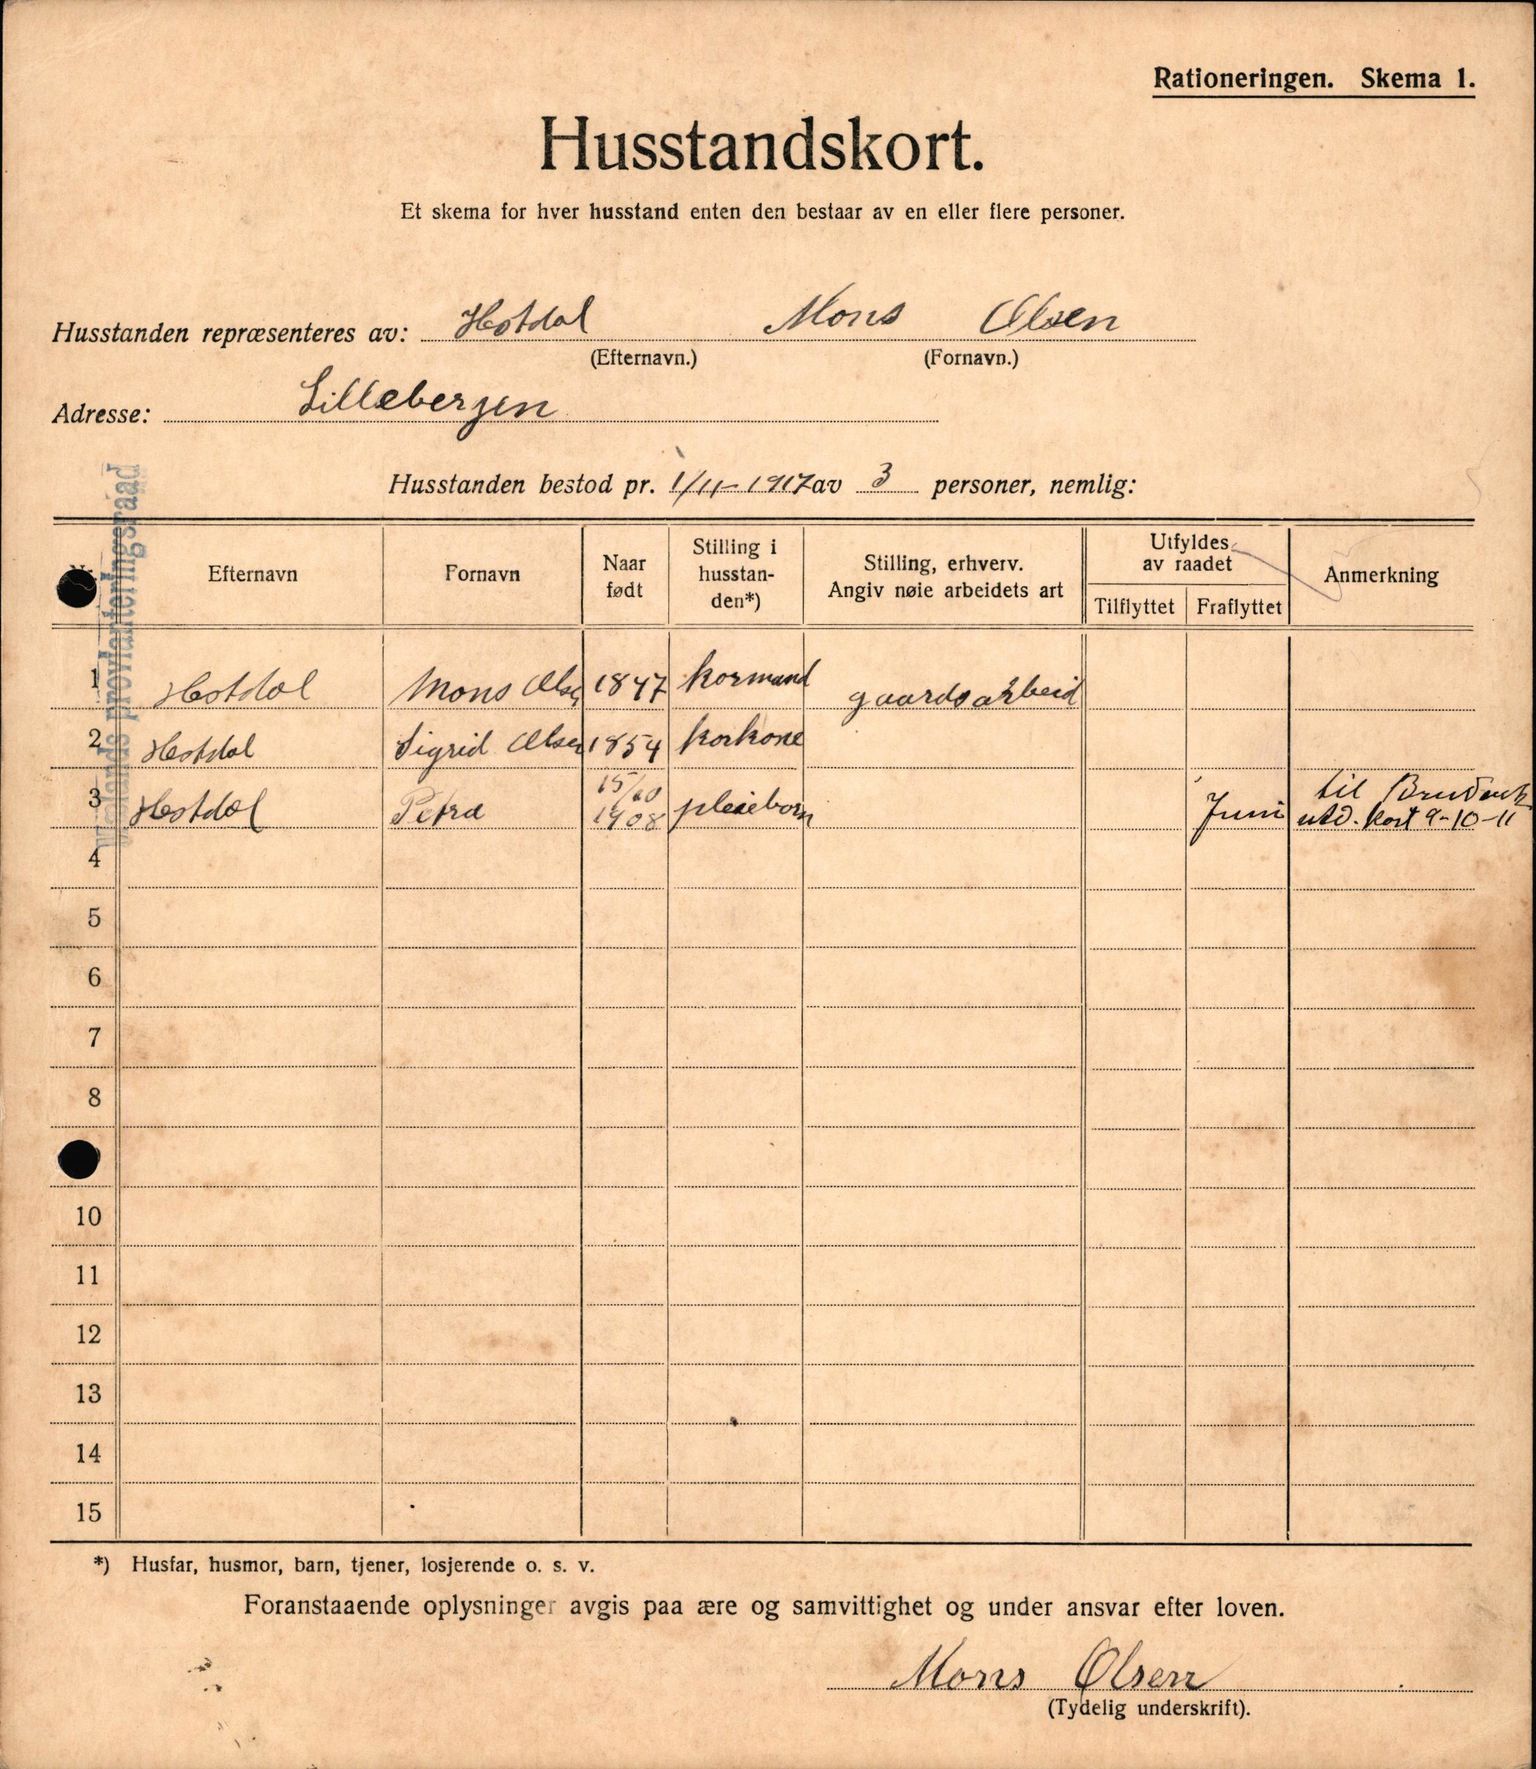 Rationeringen. Skema 1.
Husstandskort.
Et skema for hver husstand enten den bestaar av en eller flere personer.
Husstanden repræsenteres av: Hotdal Mons Olsen
(Efternavn.) (Fornavn.)
Adresse: Lillebergen
Husstanden bestod pr. 1/11-1917 av 3 personer, nemlig:
Efternavn Fornavn Naar født Stilling i husstan-den*) Stilling, erhverv. Angiv nøie arbeidets art Utfyldes av raadet Tilflyttet Fraflyttet Anmerkning
1 Hotdal Mons Olsen 1847 kormand gaardsarbeid
2 Hotdal Sigrid Olsen 1854 korkone
3 Hotdal Petra 15/10 1908 pleieborn Juni til utd. kort 9-10-11
4
5
6
7
8
10
11
12
13
14
15
provianteringsraad
*) Husfar, husmor, barn, tjener, losjerende o. s. v.
Foranstaaende oplysninger avgis paa ære og samvittighet og under ansvar efter loven.
Mons Olsen
(Tydelig underskrift).